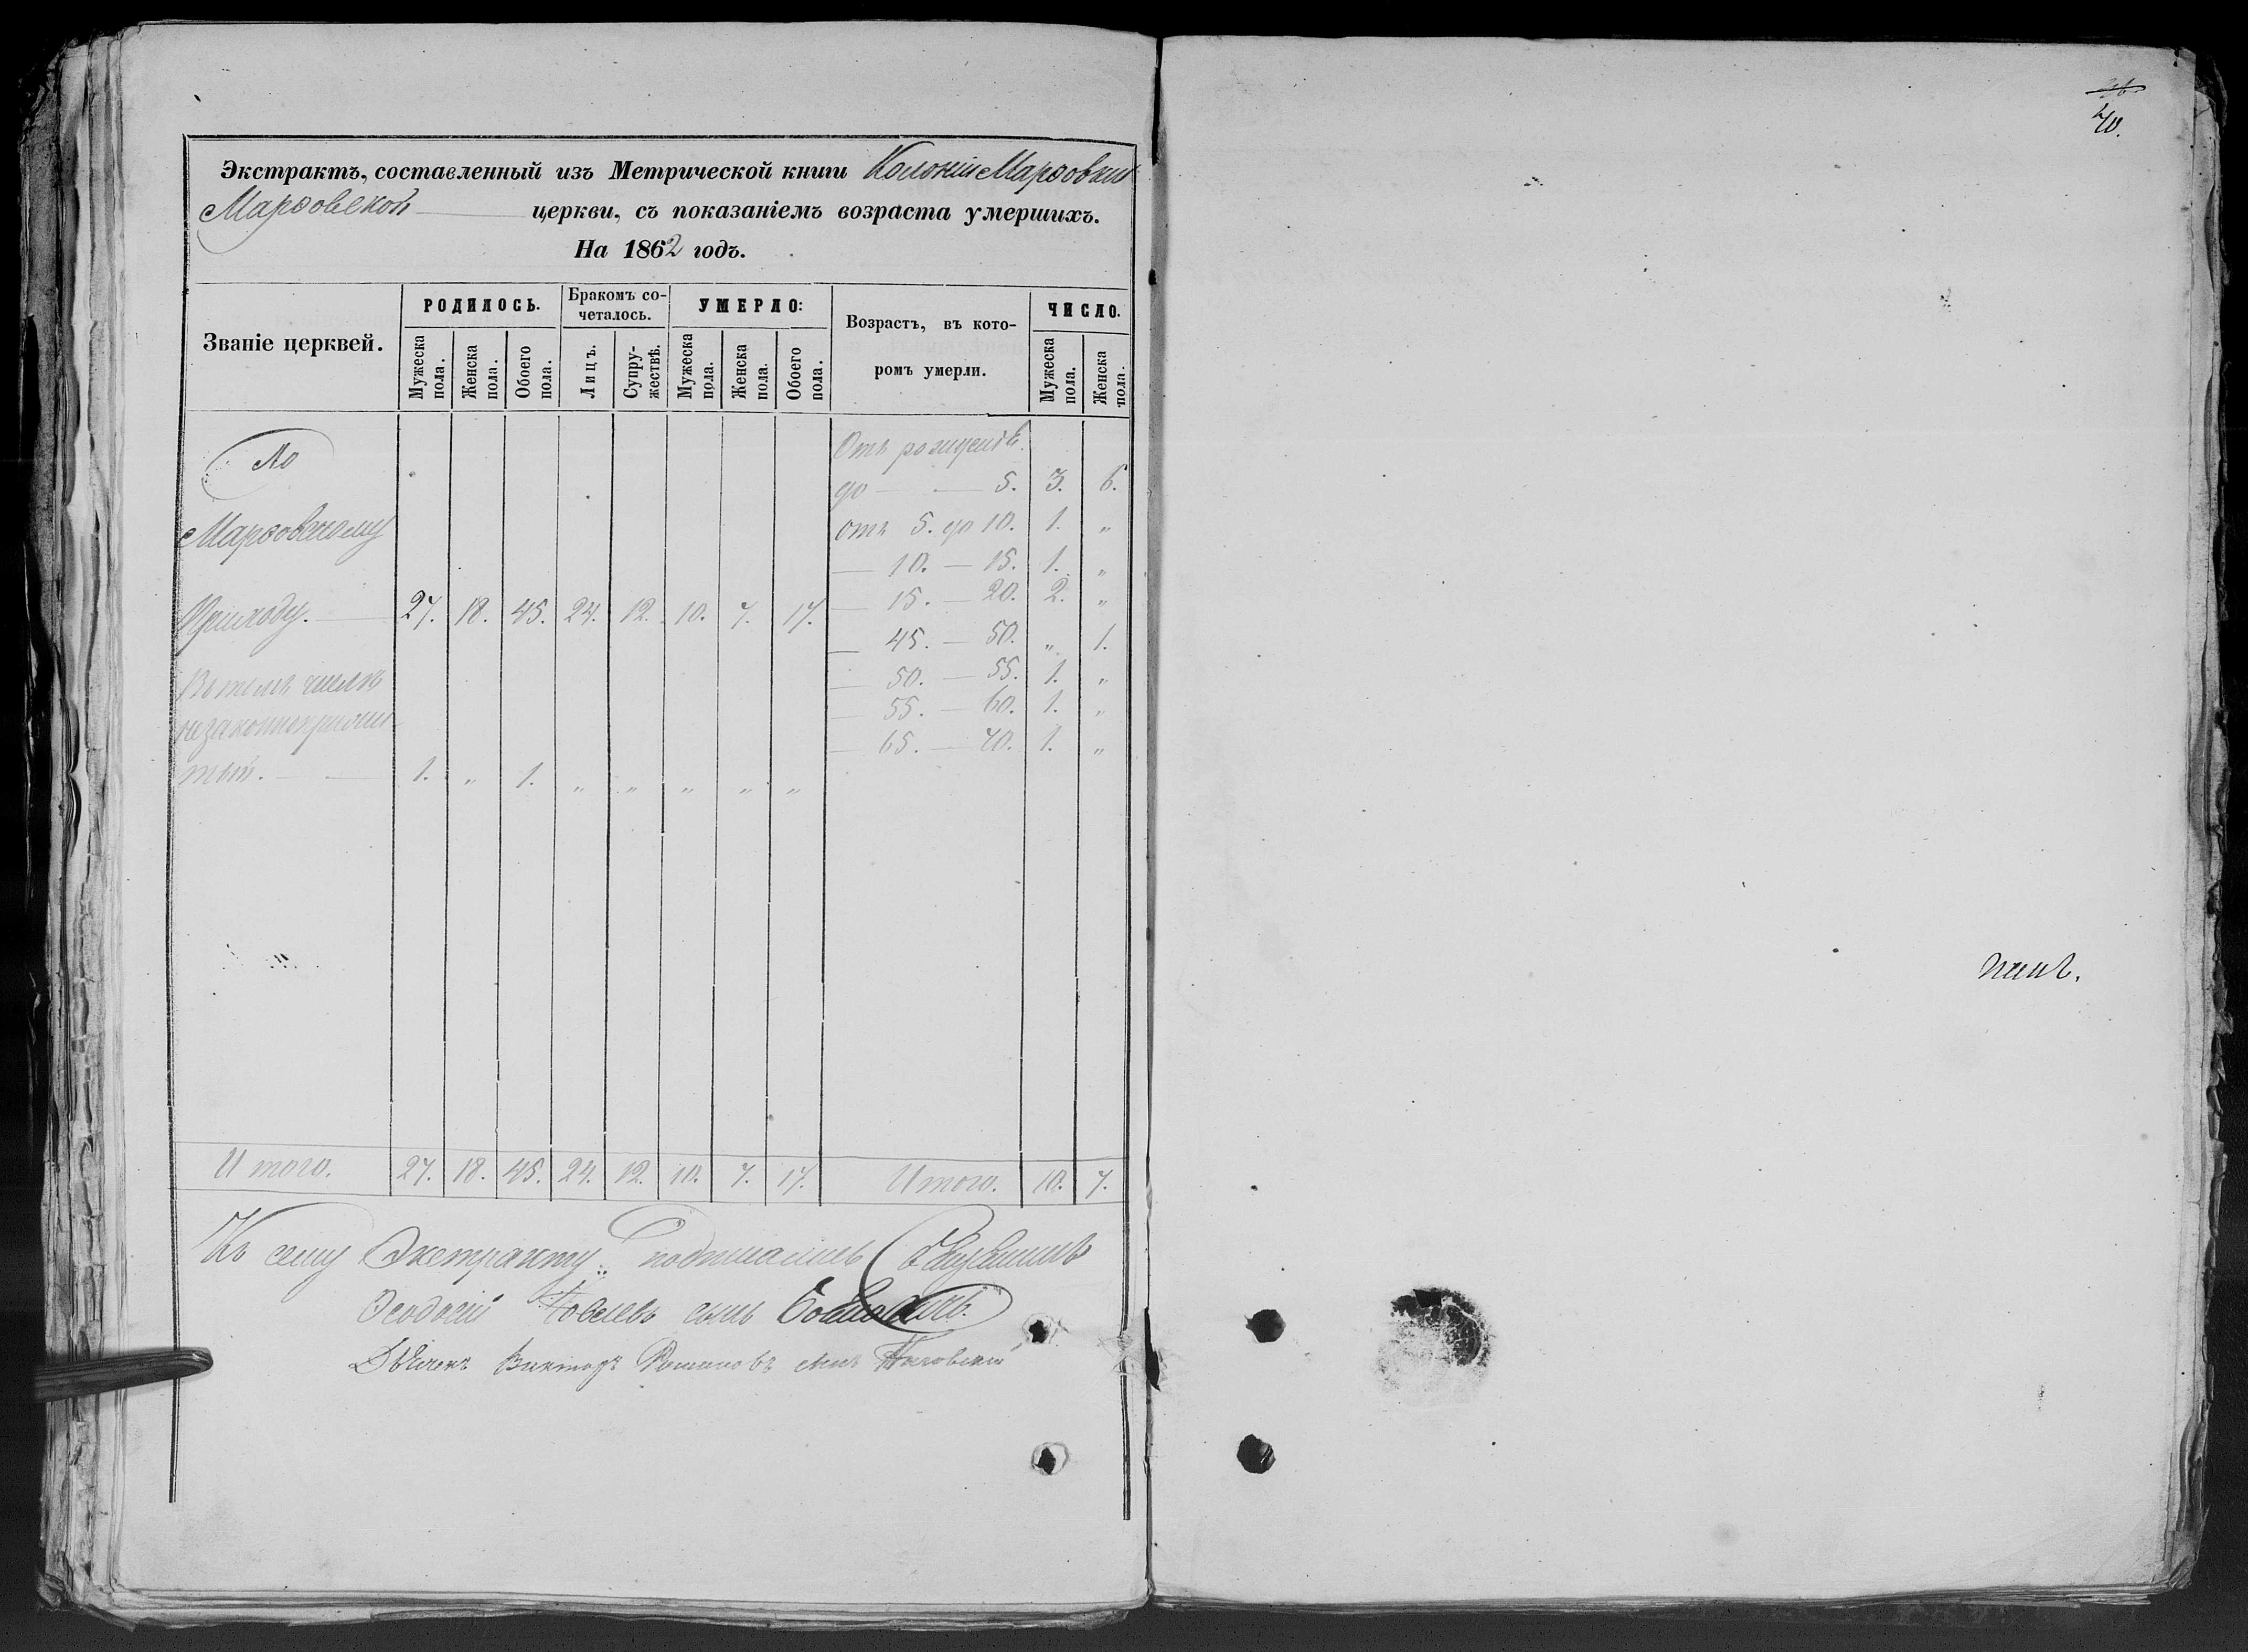 Экстрактъ, составленный изъ Метрической книги Колоніи Марзовки
Марзовской церкви, съ показаніемъ возраста умершихъ.
На 1862 годъ.
Званіе церквей.
РОДИЛОСЬ.
Бракомъ со-
четалось.
УМЕРЛО:
Возрастъ, въ кото-
ромъ умерли.
ЧИСЛО.
Мужеска пола.
Женска пола.
Обоего пола.
Лицъ.
Супру-
жествѣ.
Мужеска пола.
Женска пола.
Обоего пола.
Мужеска пола.
Женска пола.
По
Марзовскому
Приходу. 27. 18. 45. 24. 12. 10. 7. 17.
Въ томъ числѣ
незаконноприжи-
тый. 1. „ 1. „ „ „ „ „
Отъ рожденія
до — — 5. 3. 6.
отъ 5. до 10. 1. „
— 10. — 15. 1. „
— 15. — 20. 2. „
— 45. — 50. „ 1.
— 50. — 55. 1. „
— 55. — 60. 1. „
— 65. — 70. 1. „
Итого. 27. 18. 45. 24. 12. 10. 7. 17. Итого. 10. 7.
Къ сему Экстракту подписались Священникъ
Феодосій сынъ
Дьячокъ Викторъ Романовъ сынъ
40.